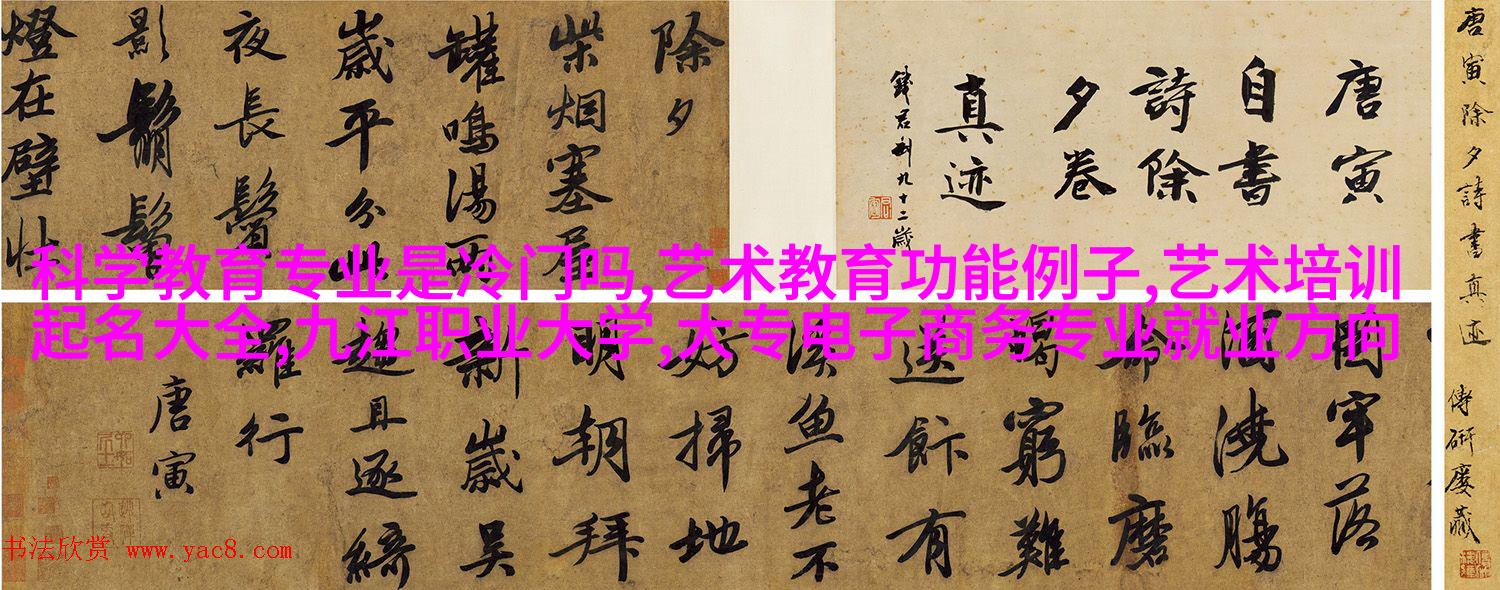 唐寅除夕詩書真迹 傅研廎藏
唐寅
自書
詩除
夕卷
真迹
錢君匋九十二歲
除夕
柴烟塞屋
罐鳴湯兩
歲平分此
夜長鬢
影鬅鬙
燈在壁壯
科学教育专业是冷门吗,艺术教育功能例子,艺术培训
起名大全,九江职业大学,大专电子商务专业就业方向
圖牢落
酒澆腸
命臨磨
蝎窮難
送飰有
溪魚老不
妨掃地
明朝拜
新歲吳
趨且逐綺
羅行
唐寅
书法欣赏 www.yac8.com